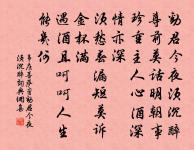 勸君今夜須沈醉
尊前莫話明朝事
珍重主人心酒深
情亦深
須愁春漏短莫訴
金杯滿
遇酒且呵呵人生
能幾何
韋莊菩薩蠻勸君今夜
須沈醉詞典網集